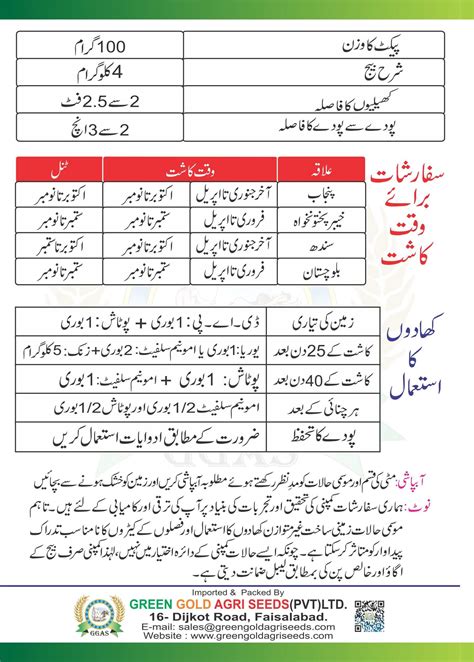 پیکٹ کا وزن 100 گرام
شرح بیج 4 کلوگرام
کھیلیوں کا فاصلہ 2 سے 2.5 فٹ
پودے سے پودے کا فاصلہ 2 سے 3 انچ
سفارشات برائے وقت کاشت
علاقہ وقت کاشت ٹنل
پنجاب آخر جنوری تا اپریل اکتوبر تا نومبر
خیبر پختونخواہ فروری تا اپریل ستمبر تا نومبر
سندھ آخر جنوری تا اپریل اکتوبر تا ستمبر
بلوچستان فروری تا اپریل ستمبر تا نومبر
کھادوں کا استعمال
زمین کی تیاری ڈی۔اے۔پی: 1 بوری + پوٹاش: 1 بوری
کاشت کے 25 دن بعد یوریا: 1 بوری یا امونیم سلفیٹ: 2 بوری + زنک: 5 کلوگرام
کاشت کے 40 دن بعد پوٹاش: 1 بوری + امونیم سلفیٹ: 1 بوری
ہر چنائی کے بعد امونیم سلفیٹ 1/2 بوری اور پوٹاش 1/2 بوری
پودے کا تحفظ ضرورت کے مطابق ادویات استعمال کریں
آبپاشی: مٹی کی قسم اور موسمی حالات کو مدنظر رکھتے ہوئے مطلوبہ آبپاشی کریں اور زمین کو خشک ہونے سے بچائیں
نوٹ: ہماری سفارشات کمپنی کی تحقیق اور تجربات کی بنیاد پر آپ کی ترقی اور کامیابی کے لئے ہیں۔ تاہم
موسمی حالات زمینی ساخت غیر متوازن کھادوں کا استعمال اور فصلوں کے کیڑوں کا نامناسب تدارک
پیداوار کو متاثر کر سکتا ہے۔ چونکہ ایسے حالات کمپنی کے دائرہ اختیار میں نہیں، لہذا کمپنی صرف بیج کے
اگاؤ اور خالص پن کی بمطابق لیبل ضمانت دیتی ہے۔
Imported & Packed By
GREEN GOLD AGRI SEEDS(PVT)LTD.
16- Dijkot Road, Faisalabad.
E-mail: sales@greengoldagriseeds.com
Website : www.greengoldagriseeds.com
GGAS